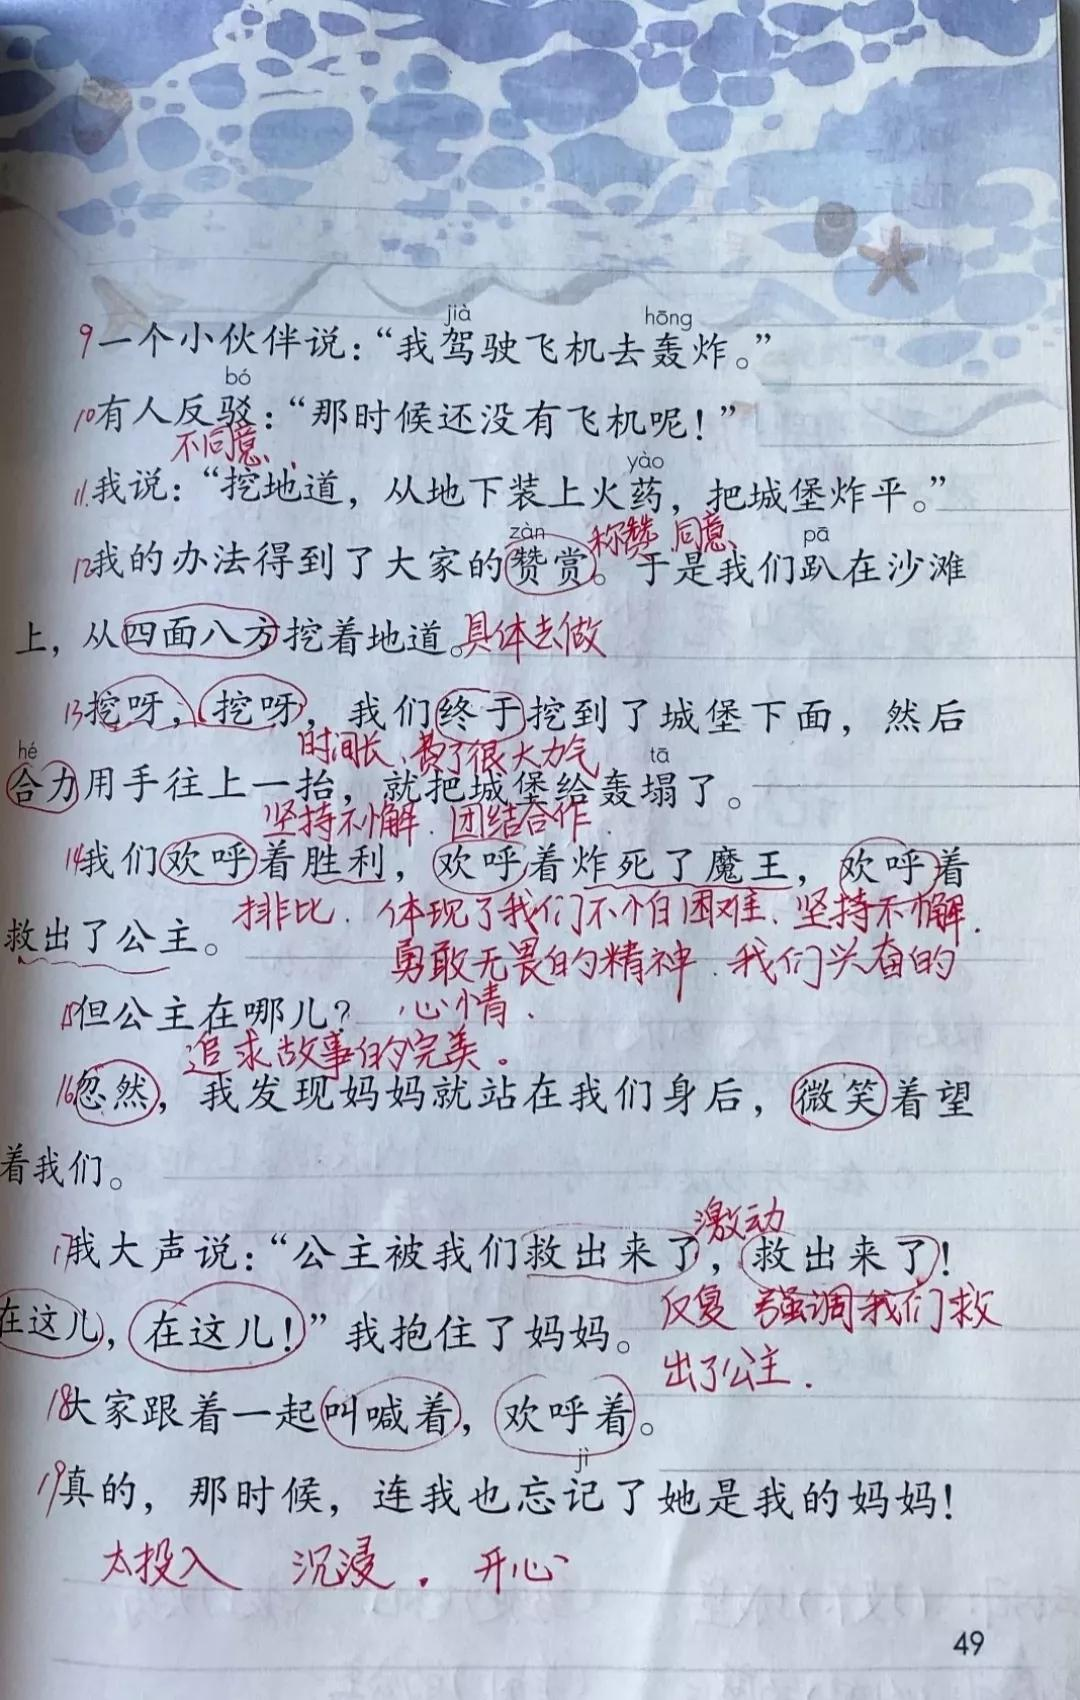 jià hōng
9一个小伙伴说：“我驾驶飞机去轰炸。”
bó
10有人反驳：“那时候还没有飞机呢！”
不同意、
yào
11.我说：“挖地道，从地下装上火药，把城堡炸平。”
zàn 称赞 同意、 pā
12我的办法得到了大家的赞赏。于是我们趴在沙滩
上，从四面八方挖着地道。具体去做
13挖呀，挖呀，我们终于挖到了城堡下面，然后
hé 时间长、费了很大力气 tā
合力用手往上一抬，就把城堡给轰塌了。
坚持不懈．团结合作．
14我们欢呼着胜利，欢呼着炸死了魔王，欢呼着
排比．体现了我们不怕困难、坚持不懈．
救出了公主。
勇敢无畏的精神．我们兴奋的
心情．
15但公主在哪儿？
追求故事的完美。
16忽然，我发现妈妈就站在我们身后，微笑着望
着我们。
激动
17我大声说：“公主被我们救出来了，救出来了！
反复 强调我们救
在这儿，在这儿！”我抱住了妈妈。
出了公主．
18大家跟着一起叫喊着，欢呼着。
jì
19真的，那时候，连我也忘记了她是我的妈妈！
太投入 沉浸． 开心
49